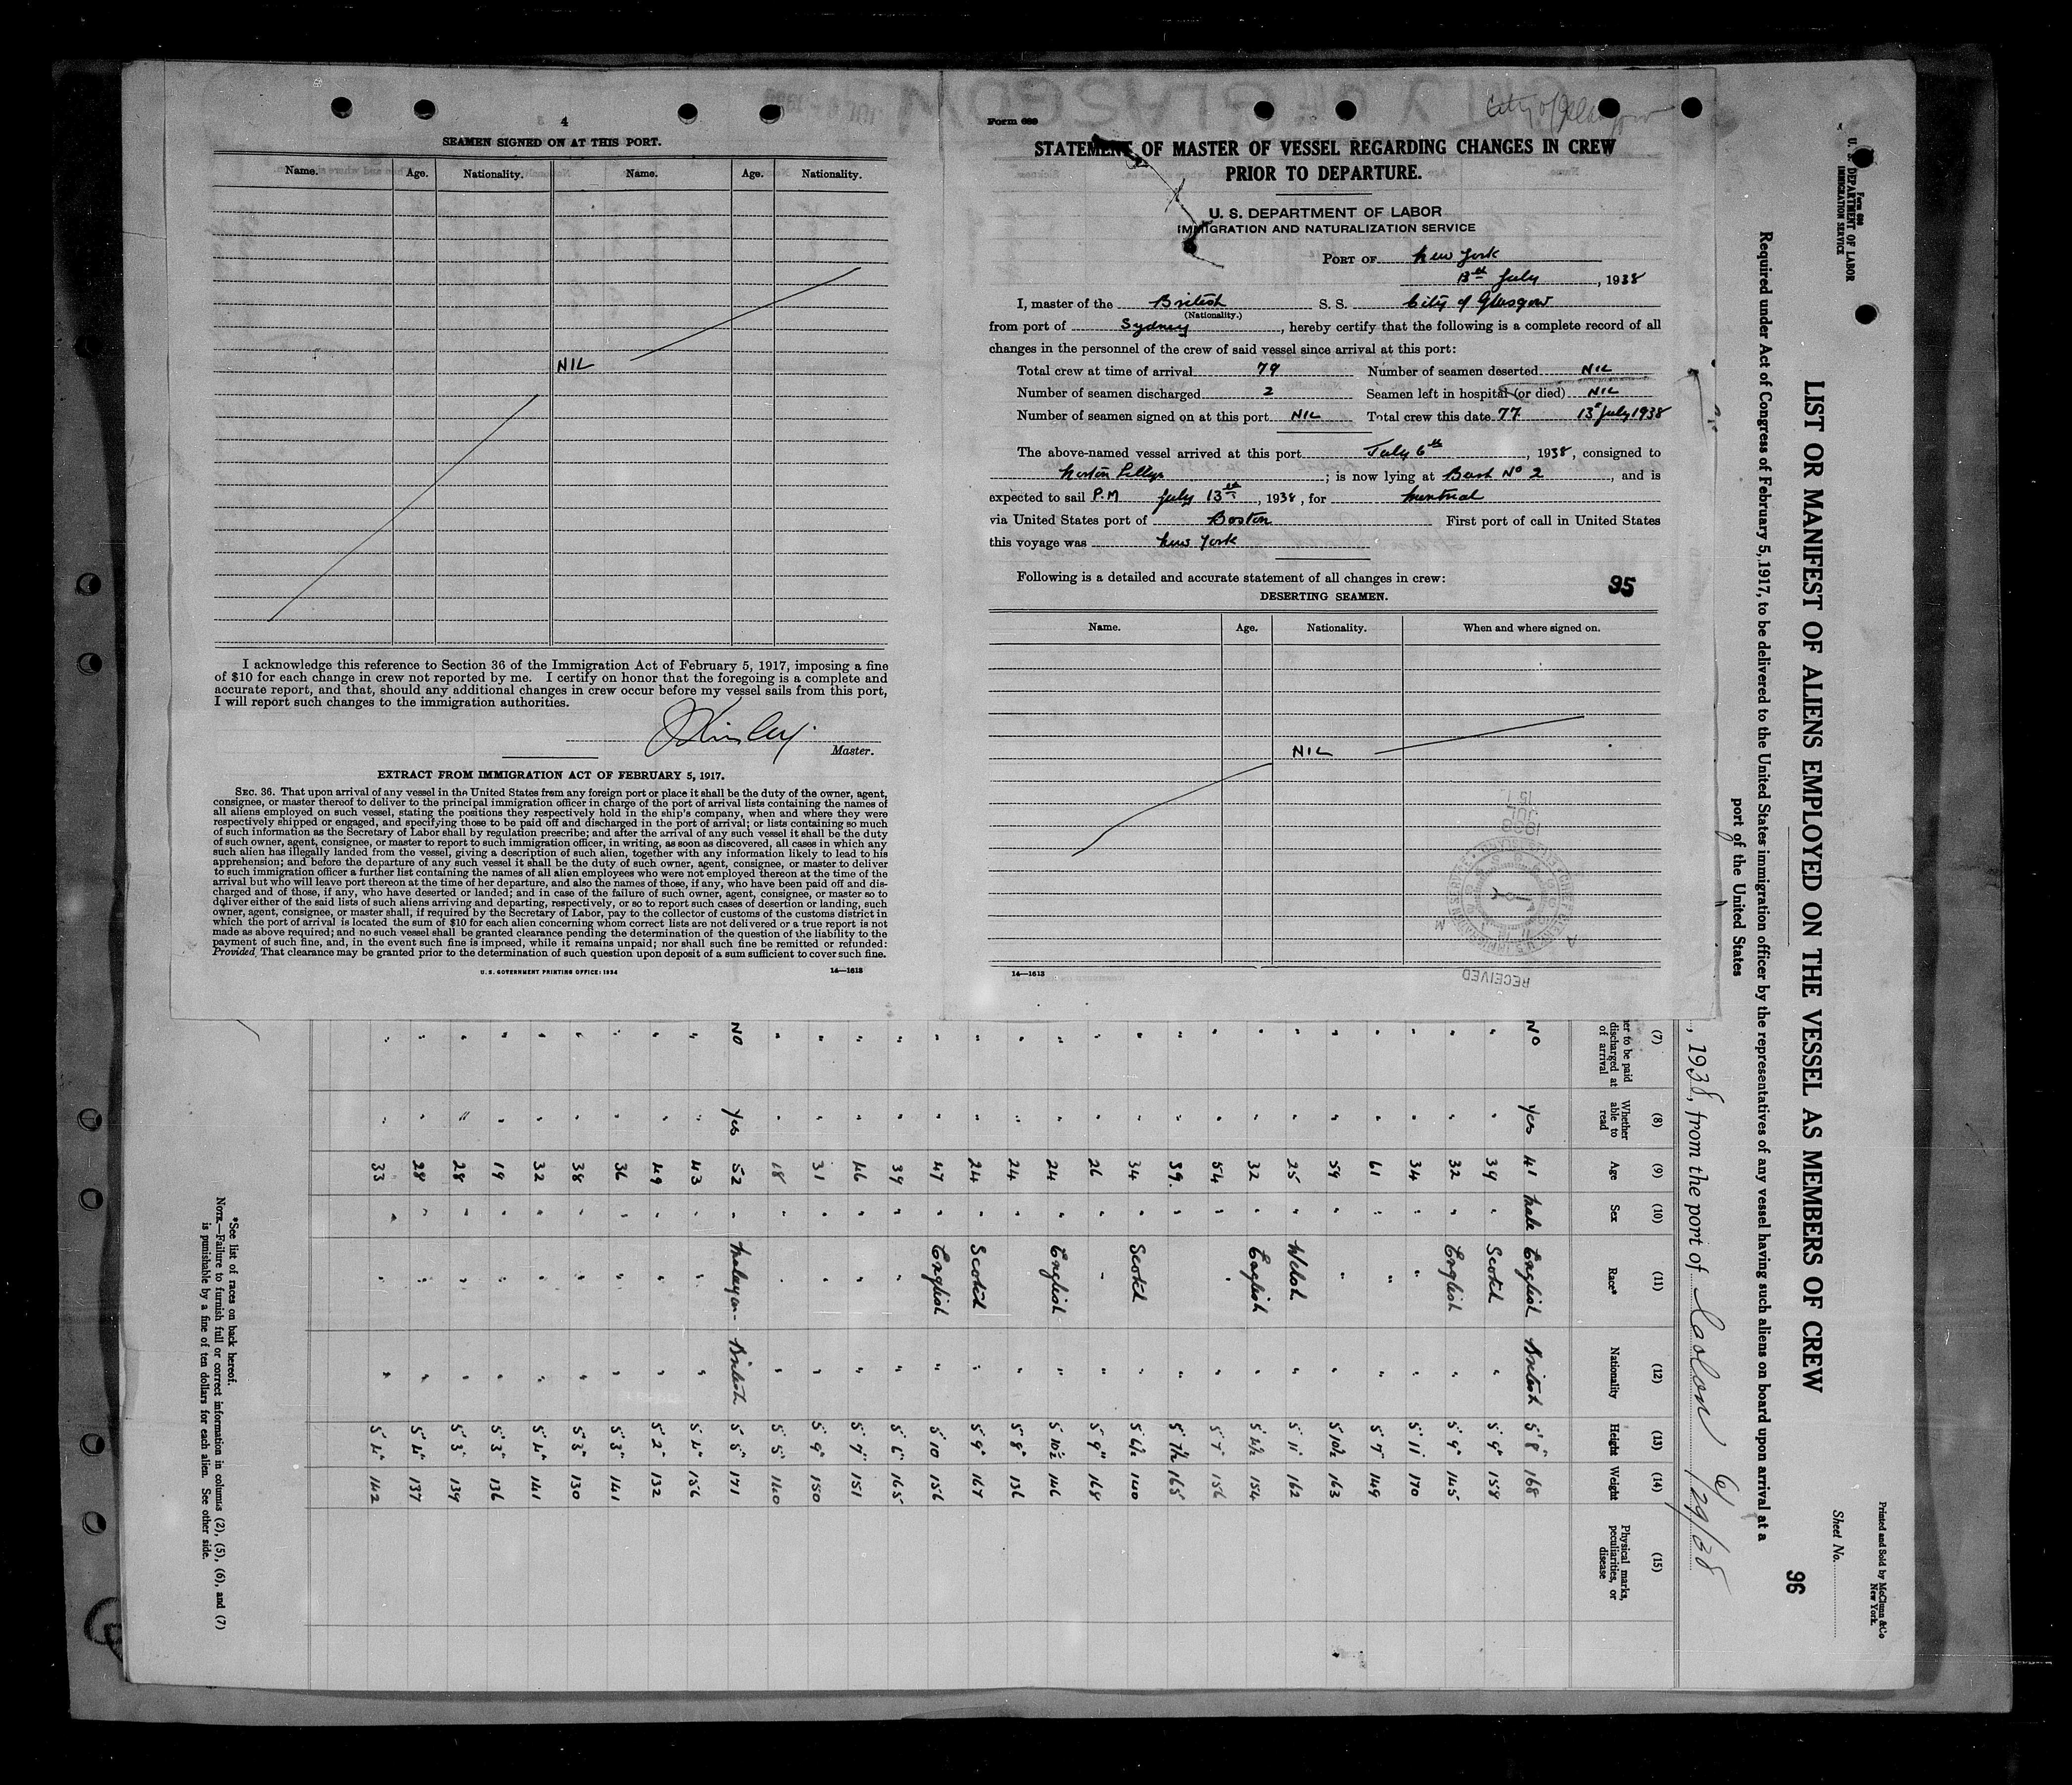 4
SEAMEN SIGNED ON AT THIS PORT.
Name. Age. Nationality. Name. Age. Nationality.
NIL
I acknowledge this reference to Section 36 of the Immigration Act of February 5, 1917, imposing a fine
of $10 for each change in crew not reported by me. I certify on honor that the foregoing is a complete and
accurate report, and that, should any additional changes in crew occur before my vessel sails from this port,
I will report such changes to the immigration authorities.
Master.
EXTRACT FROM IMMIGRATION ACT OF FEBRUARY 5, 1917.
SEC. 36. That upon arrival of any vessel in the United States from any foreign port or place it shall be the duty of the owner, agent,
consignee, or master thereof to deliver to the principal immigration officer in charge of the port of arrival lists containing the names of
all aliens employed on such vessel, stating the positions they respectively hold in the ship's company, when and where they were
respectively shipped or engaged, and specifying those to be paid off and discharged in the port of arrival; or lists containing so much
of such information as the Secretary of Labor shall by regulation prescribe; and after the arrival of any such vessel it shall be the duty
of such owner, agent, consignee, or master to report to such immigration officer, in writing, as soon as discovered, all cases in which any
such alien has illegally landed from the vessel, giving a description of such alien, together with any information likely to lead to his
apprehension; and before the departure of any such vessel it shall be the duty of such owner, agent, consignee, or master to deliver
to such immigration officer a further list containing the names of all alien employees who were not employed thereon at the time of the
arrival but who will leave port thereon at the time of her departure, and also the names of those, if any, who have been paid off and dis-
charged and of those, if any, who have deserted or landed; and in case of the failure of such owner, agent, consignee, or master so to
deliver either of the said lists of such aliens arriving and departing, respectively, or so to report such cases of desertion or landing, such
owner, agent, consignee, or master shall, if required by the Secretary of Labor, pay to the collector of customs of the customs district in
which the port of arrival is located the sum of $10 for each alien concerning whom correct lists are not delivered or a true report is not
made as above required; and no such vessel shall be granted clearance pending the determination of the question of the liability to the
payment of such fine, and, in the event such fine is imposed, while it remains unpaid; nor shall such fine be remitted or refunded:
Provided, That clearance may be granted prior to the determination of such question upon deposit of a sum sufficient to cover such fine.
U. S. GOVERNMENT PRINTING OFFICE: 1934 14—1613
City of Glasgow
Form 689
STATEMENT OF MASTER OF VESSEL REGARDING CHANGES IN CREW
PRIOR TO DEPARTURE.
U. S. DEPARTMENT OF LABOR
IMMIGRATION AND NATURALIZATION SERVICE
PORT OF New York
13th July, 1938
I, master of the British S. S. City of Glasgow
(Nationality.)
from port of Sydney, hereby certify that the following is a complete record of all
changes in the personnel of the crew of said vessel since arrival at this port:
Total crew at time of arrival 79 Number of seamen deserted NIL
Number of seamen discharged 2 Seamen left in hospital (or died) NIL
Number of seamen signed on at this port NIL Total crew this date 77 13th July 1938
The above-named vessel arrived at this port July 6th, 1938, consigned to
Norton Lillys; is now lying at Bush No 2, and is
expected to sail P.M July 13th, 1938, for Montreal
via United States port of Boston First port of call in United States
this voyage was New York
Following is a detailed and accurate statement of all changes in crew: 95
DESERTING SEAMEN.
Name. Age. Nationality. When and where signed on.
NIL
RECEIVED
1938 JUL 15
14—1613
Form 680
U. S. DEPARTMENT OF LABOR
IMMIGRATION SERVICE
Printed and Sold by McClunn & Co
New York.
Sheet No.
96
LIST OR MANIFEST OF ALIENS EMPLOYED ON THE VESSEL AS MEMBERS OF CREW
Required under Act of Congress of February 5, 1917, to be delivered to the United States immigration officer by the representatives of any vessel having such aliens on board upon arrival at a
port of the United States
, 1938, from the port of Colon 6/29/38
(7) (8) (9) (10) (11) (12) (13) (14) (15)
er to be paid discharged at of arrival Whether able to read Age Sex Race* Nationality Height Weight Physical marks, peculiarities, or disease
NO Yes 41 Male English British 5' 8" 168
" " 39 " Scotch " 5' 9" 158
" " 32 " English " 5' 9" 145
" " 34 " " " 5' 11" 170
" " 61 " " " 5' 7" 149
" " 59 " " " 5' 10½ 163
" " 25 " Welsh " 5' 11" 162
" " 32 " English " 5' 6½ 154
" " 54 " " " 5' 7" 156
" " 39 " " " 5' 7½ 165
" " 34 " Scotch " 5' 6½ 140
" " 26 " " " 5' 9" 168
" " 24 " English " 5' 10½ 146
" " 24 " " " 5' 8" 136
" " 24 " Scotch " 5' 9" 167
" " 47 " English " 5' 10 156
" " 39 " " " 5' 6" 165
" " 46 " " " 5' 7" 151
" " 31 " " " 5' 9" 150
" " 18 " " " 5' 5" 140
NO Yes 52 " Malayan British 5' 5" 171
" " 43 " " " 5' 4" 156
" " 49 " " " 5' 2" 132
" " 36 " " " 5' 3" 141
" " 38 " " " 5' 3" 130
" " 32 " " " 5' 4" 141
" " 19 " " " 5' 3" 136
" " 28 " " " 5' 3" 139
" " 28 " " " 5' 4" 137
" " 33 " " " 5' 4" 142
*See list of races on back hereof.
NOTE.—Failure to furnish full or correct information in columns (2), (5), (6), and (7)
is punishable by a fine of ten dollars for each alien. See other side.